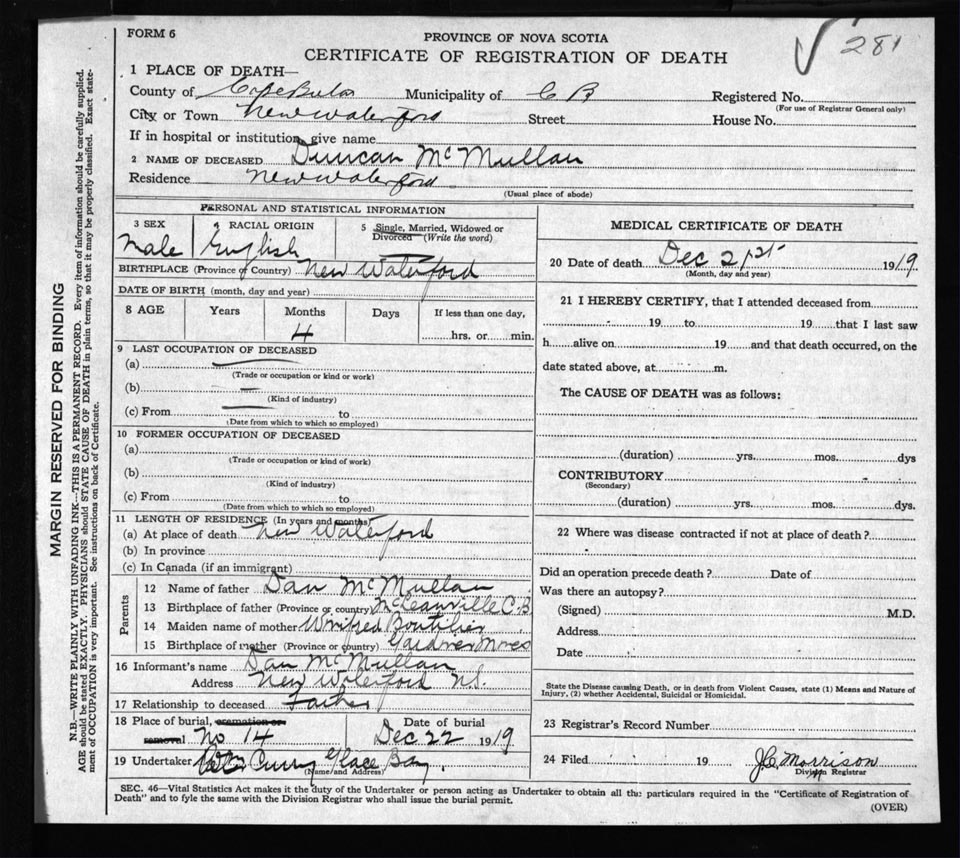 FORM 6
PROVINCE OF NOVA SCOTIA
CERTIFICATE OF REGISTRATION OF DEATH
281
1 PLACE OF DEATH—
County of Cape Breton Municipality of C B Registered No.
(For use of Registrar General only)
City or Town New Waterford Street House No.
If in hospital or institution, give name
2 NAME OF DECEASED Duncan McMullan
Residence New Waterford
(Usual place of abode)
PERSONAL AND STATISTICAL INFORMATION
3 SEX
Male
4 RACIAL ORIGIN
English
5 Single, Married, Widowed or
Divorced (Write the word)
BIRTHPLACE (Province or Country) New Waterford
DATE OF BIRTH (month, day and year)
8 AGE Years Months Days If less than one day,
4 hrs. or min.
9 LAST OCCUPATION OF DECEASED
(a)
(Trade or occupation or kind or work)
(b)
(Kind of industry)
(c) From to
(Date from which to which so employed)
10 FORMER OCCUPATION OF DECEASED
(a)
(Trade or occupation or kind of work)
(b)
(Kind of industry)
(c) From to
(Date from which to which so employed)
11 LENGTH OF RESIDENCE (In years and months)
(a) At place of death New Waterford
(b) In province
(c) In Canada (if an immigrant)
Parents
12 Name of father Dan McMullan
13 Birthplace of father (Province or country) McLeanville C.B
14 Maiden name of mother Winifred Boutilier
15 Birthplace of mother (Province or country) Gardner Mines
16 Informant's name Dan McMullan
Address New Waterford N.S.
17 Relationship to deceased Father
18 Place of burial, cremation or Date of burial
removal No 14 Dec 22 1919
19 Undertaker Curry Glace Bay
(Name and Address)
MEDICAL CERTIFICATE OF DEATH
20 Date of death Dec 21st 1919
(Month, day and year)
21 I HEREBY CERTIFY, that I attended deceased from
19 to 19 that I last saw
h alive on 19 and that death occurred, on the
date stated above, at m.
The CAUSE OF DEATH was as follows:
(duration) yrs. mos. dys
CONTRIBUTORY
(Secondary)
(duration) yrs. mos. dys.
22 Where was disease contracted if not at place of death?
Did an operation precede death? Date of
Was there an autopsy?
(Signed) M.D.
Address
Date
State the Disease causing Death, or in death from Violent Causes, state (1) Means and Nature of
Injury, (2) whether Accidental, Suicidal or Homicidal.
23 Registrar's Record Number
24 Filed 19 J.C. Morrison
Division Registrar
SEC. 46—Vital Statistics Act makes it the duty of the Undertaker or person acting as Undertaker to obtain all the particulars required in the "Certificate of Registration of
Death" and to fyle the same with the Division Registrar who shall issue the burial permit.
(OVER)
MARGIN RESERVED FOR BINDING
N.B.—WRITE PLAINLY WITH UNFADING INK—THIS IS A PERMANENT RECORD. Every item of information should be carefully supplied.
AGE should be stated EXACTLY. PHYSICIANS should STATE CAUSE OF DEATH in plain terms, so that it may be properly classified. Exact state-
ment of OCCUPATION is very important. See instructions on back of Certificate.